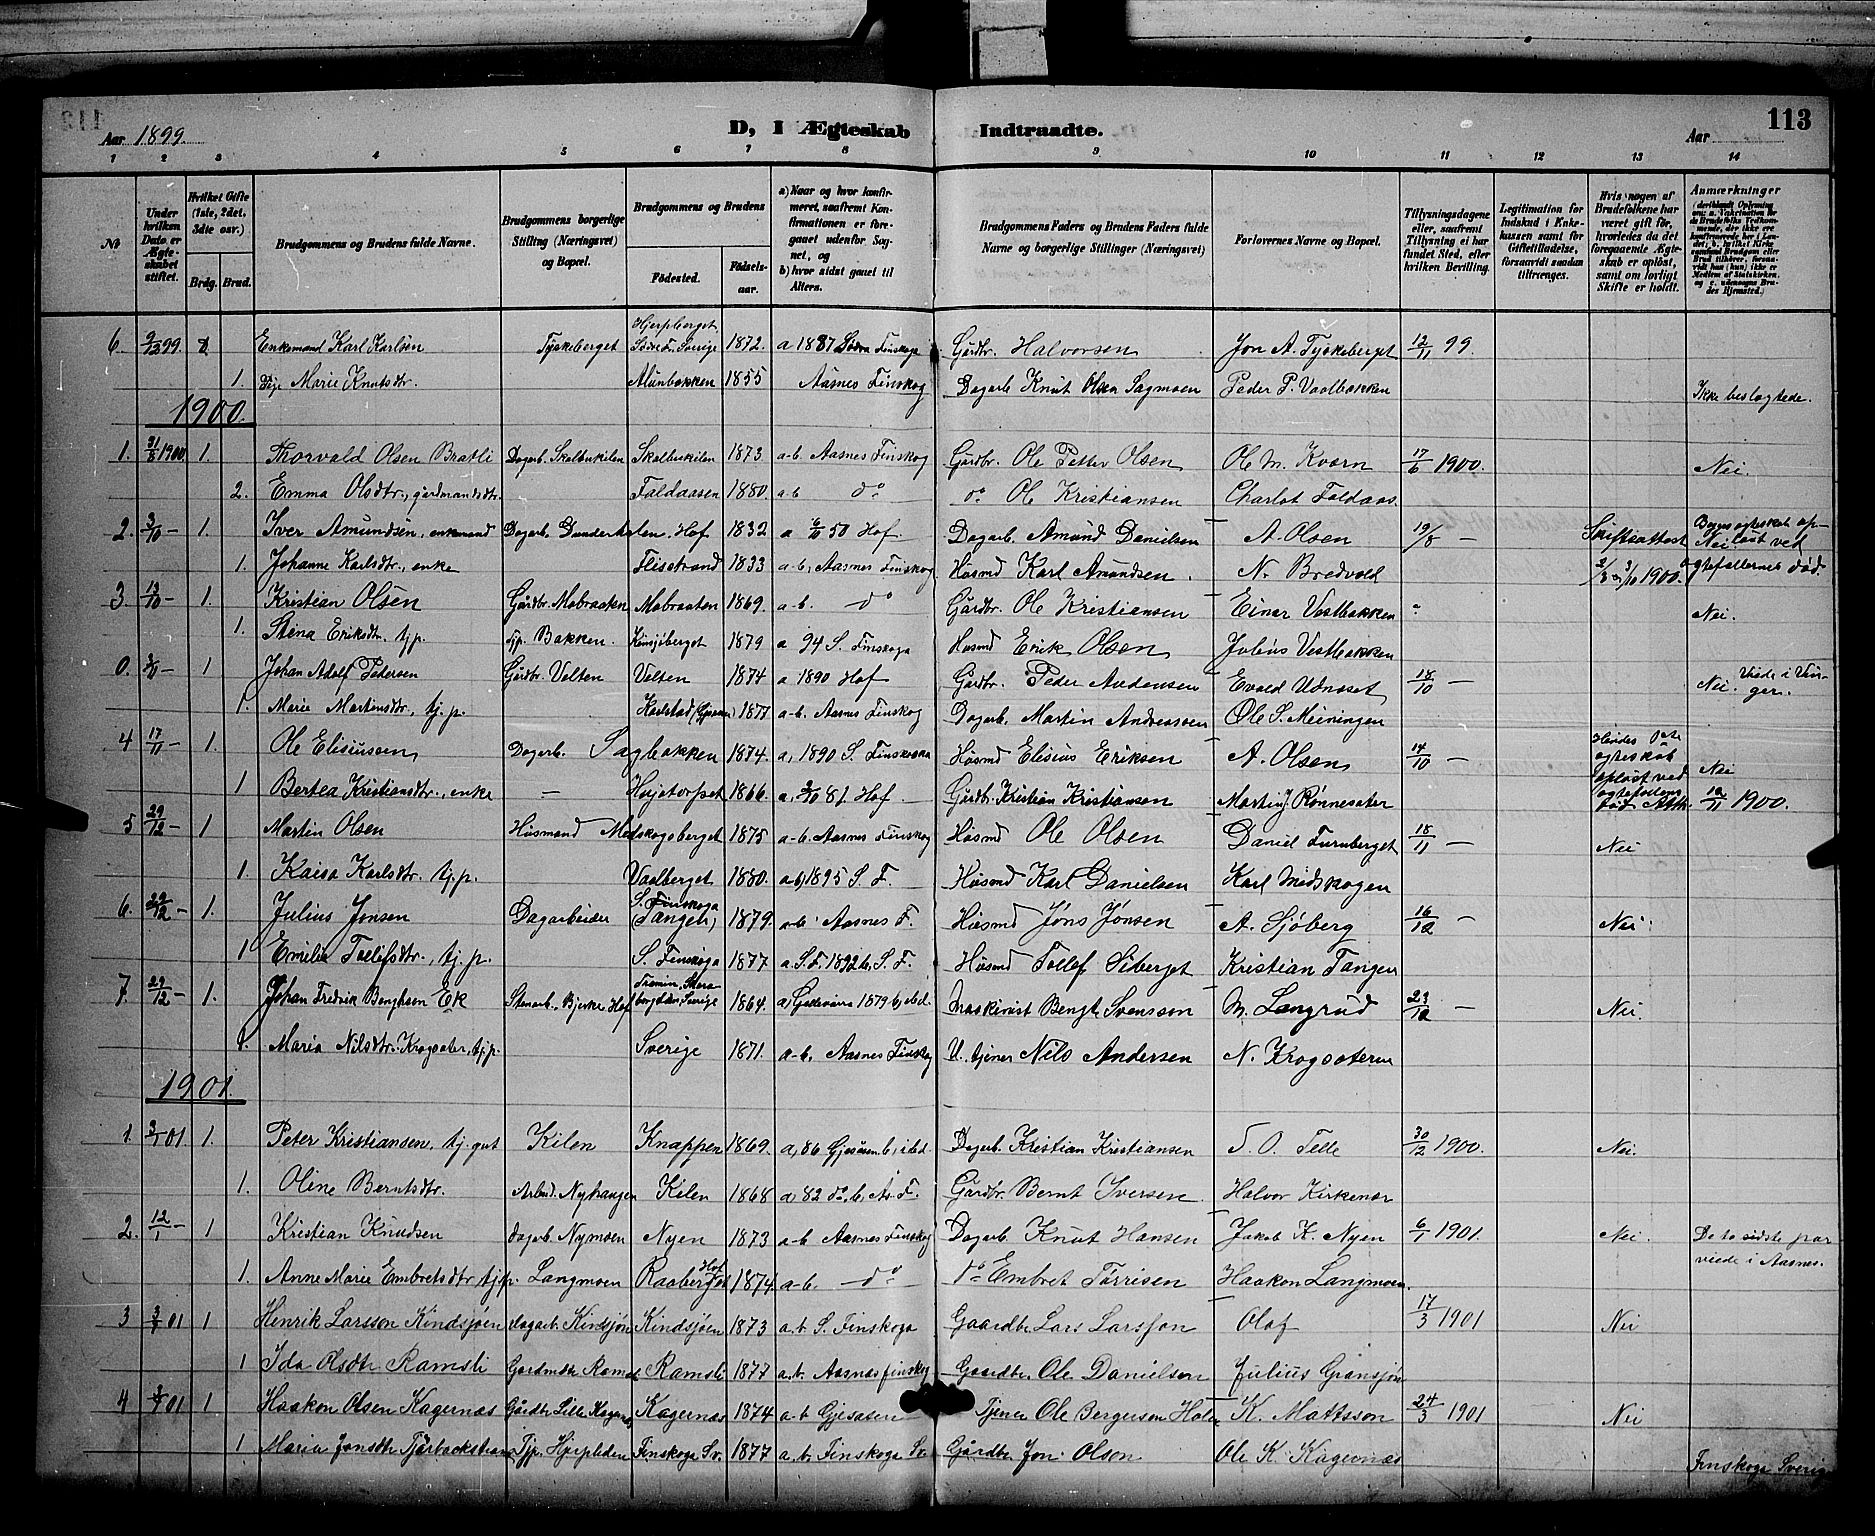 113
Aar 1899.
D, I Ægteskab Indtraadte.
Aar
1 2 3 4 5 6 7 8 9 10 11 12 13 14
№
Under hvilken Dato er Ægteskabet stiftet.
Hvilket Gifte (1ste, 2det, 3die osv.)
Brdg. Brud.
Brudgommens og Brudens fulde Navne.
Brudgommens borgerlige Stilling (Næringsvei) og Bopæl.
Brudgommens og Brudens
Fødested. Fødselsaar.
a) Naar og hvor konfirmeret, saafremt Konfirmationen er foregaaet udenfor Sognet, og
b) hvor sidst gaaet til Alters.
Brudgommens Faders og Brudens Faders fulde Navne og borgerlige Stillinger (Næringsvei)
Forlovernes Navne og Bopæl.
Tillysningsdagene eller, saafremt Tillysning ei har fundet Sted, efter hvilken Bevilling.
Legitimation for Indskud i Enkekassen samt for Giftetilladelse, forsaavidt saadan tiltrænges.
Hvis nogen af Brudefolkene har været gift før, hvorledes da det foregaaende Ægteskab er opløst, samt om lovligt Skifte er holdt.
Anmærkninger
6. 9/12 99. 2. Enkemand Karl Karlsen Tyskeberget Hjerpberget, Søndre F. Sverige 1872. a 1887 Södra Finskoga Gårdbr. Halvorsen Jon A. Tyskeberget 12/11 99
1. Pige Marie Knutsdtr. Alünbakken 1855 Aasnes Finskog Dagarb Knut Olsen Sagmoen Peder P. Vaalbakken Ikke beslægtede.
1900.
1. 31/8 1900. 1. Thorvald Olsen Bratli Dagarb. Skalbukilen Skalbukilen 1873 a-b. Aasnes Finskog Gårdbr. Ole Petter Olsen Ole M. Kværn 17/6 1900. Nei.
2. Emma Olsdtr., gårdmandsdtr. Faldaasen 1880. a-b d° d° Ole Kristiansen Charlot Faldaas.
2. 3/10 - 1. Iver Amundsen, enkemand Dagarb. Gunderholen, Hof 1832 a 6/10 50 Hof Dagarb. Amünd Danielsen A. Olsen 19/8 - Skiftesattest Nei
1. Johanne Karlsdtr., enke Flisstrand 1833 a-b, Aasnes Finskog Hüsmd Karl Amündsen. N. Bredvold 3/10 1900. ægtefællernes død.
3. 13/10 - 1. Kristian Olsen Gårdbr. Mobraaten Mobraaten 1869. a-b. d° Gårdbr. Ole Kristiansen Einar Vestbakken Nei.
1. Stina Eriksdtr. tj.p. tjp. Bakken. Kinsjöberget 1879 a 94 S. Finskoga Hüsmd Erik Olsen Julius Vestbakken
0. - 1 Johan Adolf Pedersen Gårdbr. Velten Velten 1874 a 1890 Hof Gårdbr. Peder Andersen Evald Udnæset 18/10 - Nei. Viede i Vinger.
1. Marie Martinsdtr., tj.p. Karlstad 1877 a-b. Aasnes Finskog Dagarb. Martin Andreassen Ole S. Meiningen
4 17/11 - 1. Ole Elisiussen Dagarb. Sagbakken 1874. a, 1890 S. Finskoga Hüsmd Elisius Eriksen A. Olsen 14/10 - Hendes ægteskab opløst ved ægtefællens død Nei
1 Bertea Kristiansdtr., enke - Hojotorpet 1866 a, 81. Hof. Gårdbr. Kristian Kristiansen Martin J. Rønnesæter 1900.
5 29/12 - 1 Martin Olsen Hüsmand Medskogsberget 1875 a-b. Aasnes Finskog Hüsmd Ole Olsen Daniel Furuberget 18/11 - Nei
1. Kaisa Karlsdtr. tj.p. Vaalberget 1880. a-b, 1895 S. F. Hüsmd Karl Danielsen Karl Midskogen
6. 29/12 - 1. Julius Jonsen Dagarbeider S. Finskoga (Tangen) 1879. a-b Aasnes F. Hüsmd Jöns Jönsen A. Sjöberg 16/12 - Nei
1 Emelia Tollefsdtr., tj.p. S. Finskoga 1877 a. S.F. 1892 b, S. F. Hüsmd Tollef Siberget Kristian Tangen
7. 29/12 - 1. Johan Fredrik Bengtsson Ek Stenarb., Bjerke Hof Sverige 1864. a, Gellevåra 1879 b, ibd. Maskinist Bengt Svensson M. Langrüd 23/12 - Nei.
1. Maria Nilsdtr. Krogsæter, tj.p. Sverige 1871. a-b, Aasnes Finskog U. tjener Nils Andersen N. Krogsæteren
1901.
1. 3/1 01 1. Peter Kristiansen, tj.gut Kilen Knappen 1869. a, 86 Gjesåsen b, ibd. Dagarb. Kristian Kristiansen T. O. Telle 30/12 1900. Nei.
1. Oline Berntsdtr. Arbeid. Nyhaugen Kilen 1868 a, 82 d°, b, As. F. Gårdbr. Bernt Iversen Halvor Kirkenær
2. 12/1 - 1 Kristian Knudsen dagarb Nymoen Nyen 1873 a-b Aasnes Finskog Dagarb Knut Hansen Jakob K. Nyen 6/1 1901. Nei. De to sidste par viede i Aasnes.
1. Anne Marie Embretsdtr tj.p. Langmoen Raaberget Hof 1874. a-b. d° d° Embret Tørrisen Haakon Langmoen.
3 01 1 Henrik Larsson Kindsjöen dagarb Kindsjön Kindsjöen 1873 a.b S. Finskoga Gaardbr Lars Larsson Olaf 17/3 1901 Nei
1 Ida Olsdtr Ramsli Gaardmdtr Ramsli Ramsli 1877 a.b. Aasnes finskog Gaardbr Ole Danielsen Julius Gransjön
4 01 1 Haakon Olsen Kagernæs Gårdbr Lille Kagernæs Kagernæs 1874 a-b Gjesåsen Tjener Ole Bergerson K. Mattsson 24/3 1901 Nei
1 Maria Jonsdtr Tjärbackstrand Tjp. Hjerpliden Finskoga Sv. 1877 a.b. Finskoga Sv. Gårdbr Jon Olson Ole K. Kagernæs Finskoga Sverige